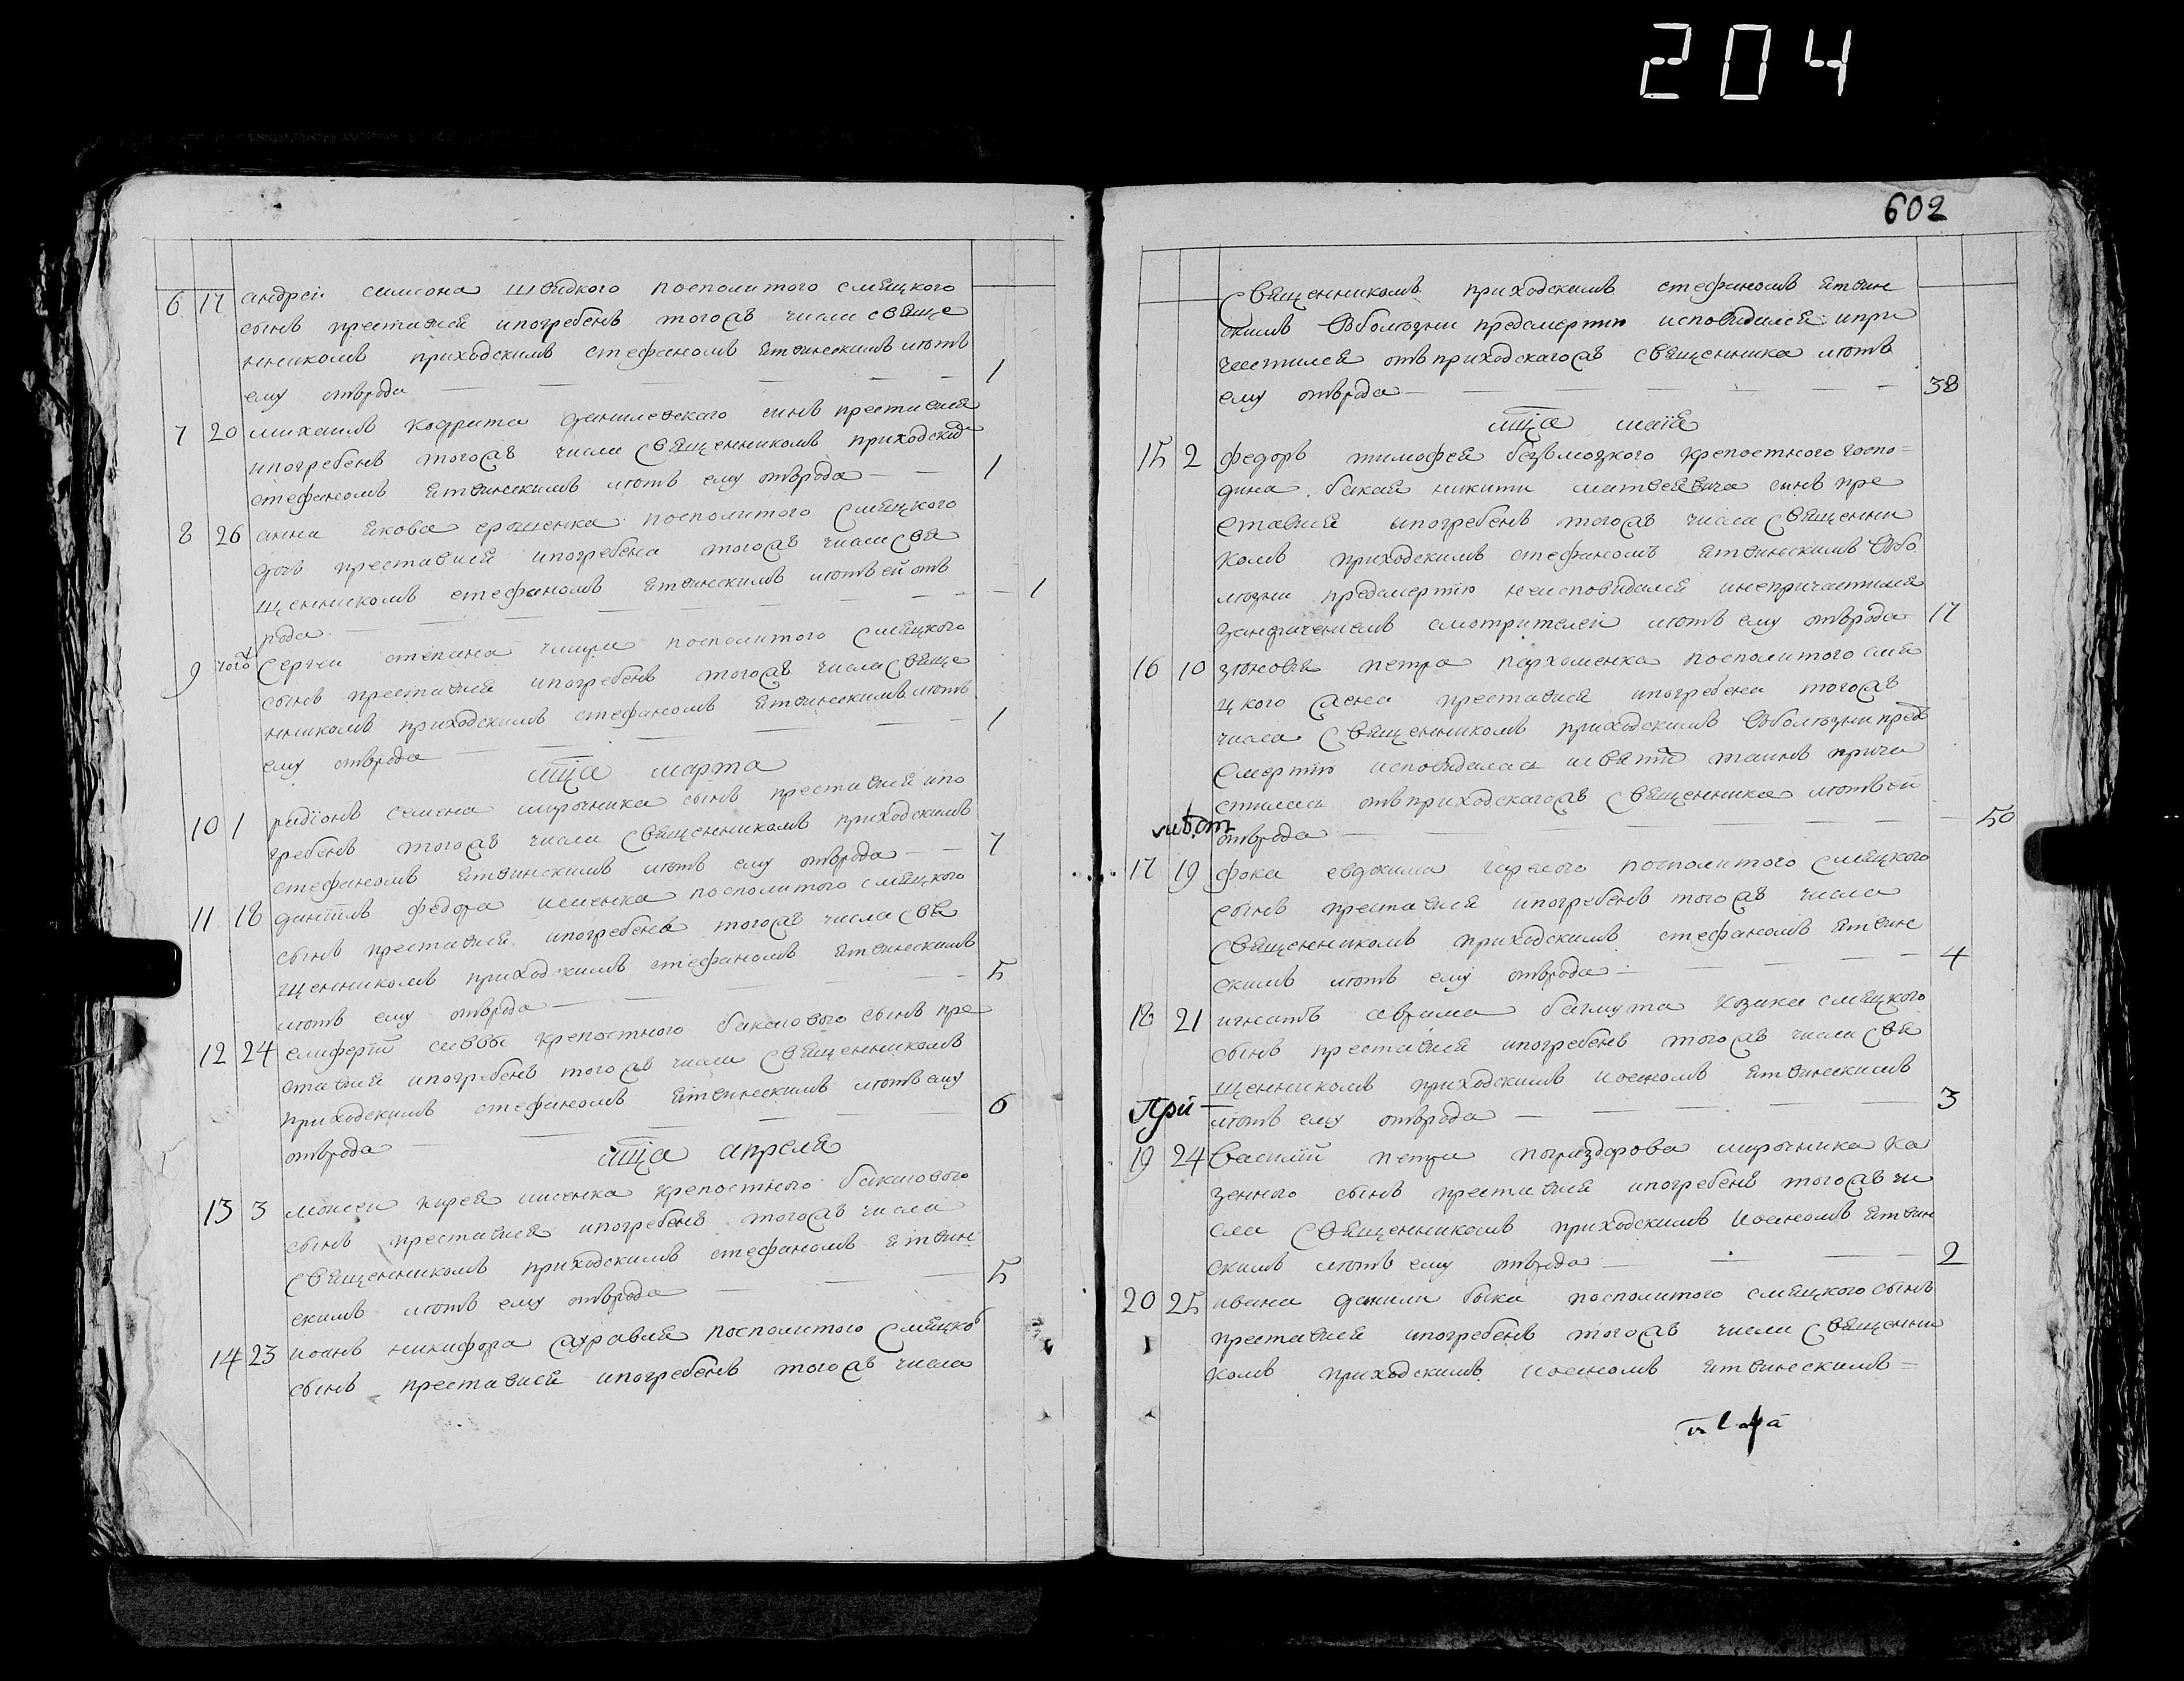 204
602
6 17 андрей самсона швидкого посполитого смяцкого
сынъ преставися ипогребенъ тогожъ числа свяще
нникомъ приходскимъ стефаномъ ятвинскимъ лѣтъ
ему отврода — 1
7 20 михаилъ данилевскаго синъ преставися
ипогребенъ тогожъ числа священникомъ приходским
стефаномъ ятвинскимъ лѣтъ ему отврода — 1
8 26 анна якова ерошенка посполитого смяцкого
дочь преставися ипогребена тогожъ числа свя
щенникомъ стефаномъ ятвинскимъ лѣтъ ей отъ
рода — 1
9 того сергѣи степана посполитого смяцкого
сынъ преставися ипогребенъ тогожъ числа свяще
нникомъ приходскимъ стефаномъ ятвинскимъ лѣтъ
ему отврода — 1
мца марта
10 1 радіонъ семена мирочника сынъ преставися ипо
гребенъ тогожъ числа священникомъ приходскимъ
стефаномъ ятвинскимъ лѣтъ ему отврода — 7
11 18 даніилъ федора посполитого смяцкого
сынъ преставися ипогребенъ тогожъ числа свя
щенникомъ приходскимъ стефаномъ ятвинскимъ
лѣтъ ему отврода — 5
12 24 елиферій саввы крепостного бакаового сынъ пре
ставися ипогребенъ тогожъ числа священникомъ
приходскимъ стефаномъ ятвинскимъ лѣтъ ему
отврода — 6
мца апреля
13 3 моисеи кирея крепостного бакаового
сынъ преставися ипогребенъ тогожъ числа
священникомъ приходскимъ стефаномъ ятвин
скимъ лѣтъ ему отврода — 5
14 23 иоанъ никифора журавля посполитого смяцког
сынъ преставися ипогребенъ тогожъ числа
священникомъ приходскимъ стефаномъ ятвин
скимъ вболѣзни предсмертию исповидался ипри
частился отвприходскагожъ священника лѣтъ
ему отврода — 38
мца маія
15 2 федоръ тимофея крепостного госпо=
дина бакая никити матвеевича синъ пре
ставися ипогребенъ тогожъ числа священни
комъ приходскимъ стефаномъ ятвинскимъ вбо
лѣзни предсмертию неисповидался инепричастился
смотрителей лѣтъ ему отврода 17
16 10 зѣновія петра пархоменка посполитого смя
цкого жена преставися ипогребена тогожъ
числа священникомъ приходскимъ вболѣзни пред
смертию исповидалась исвятих таинъ прича
стилась отвприходскагожъ священника лѣтъ ей
отврода — 50
17 19 фока евдокима посполитого смяцкого
сынъ преставися ипогребенъ тогожъ числа
священникомъ приходскимъ стефаномъ ятвин
скимъ лѣтъ ему отврода — 4
18 21 игнатъ аврама багмута козака смяцкого
сынъ преставися ипогребенъ тогожъ числа свя
щенникомъ приходскимъ иоаномъ ятвинскимъ
При
лѣтъ ему отврода — 3
19 24 василій петра мирочника ка
зенного сынъ преставися ипогребенъ тогожъ чи
сла священникомъ приходскимъ иоаномъ ятвин
скимъ лѣтъ ему отврода — 2
20 25 ивана данила бика посполитого смяцкого сынъ
преставися ипогребенъ тогожъ числа священни
комъ приходскимъ иоаномъ ятвинскимъ =